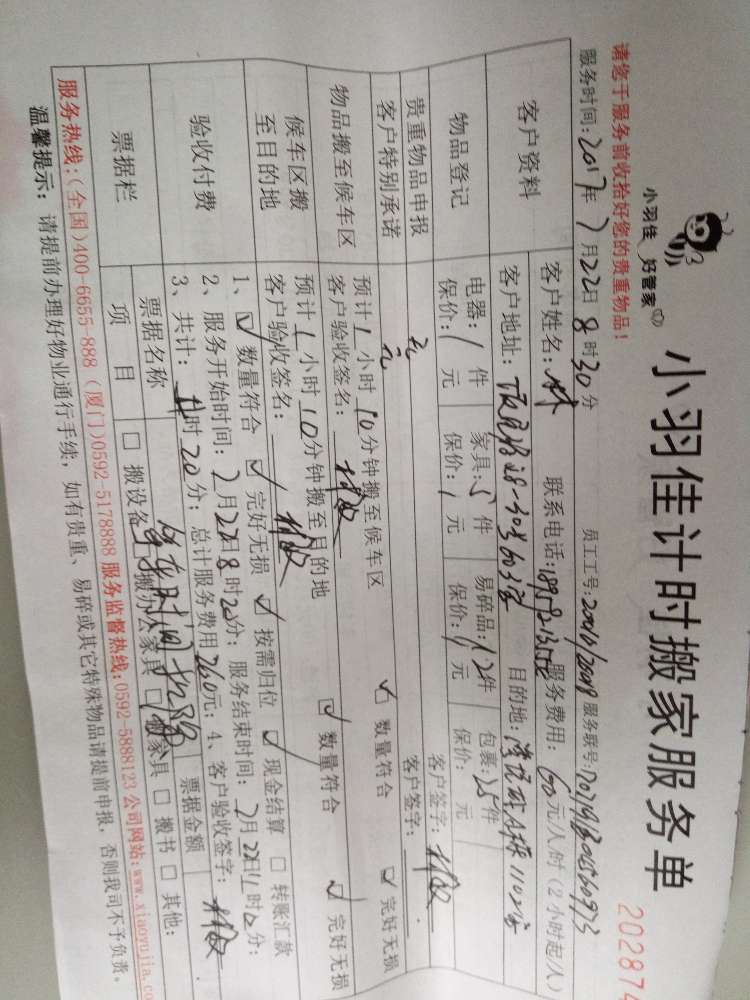 小羽佳计时搬家服务单
202874
小羽佳 好管家
请您于服务前收拾好您的贵重物品！
服务时间：2017年7月22日8时30分 员工工号：服务联号：
客户资料
客户姓名：林 联系电话： 服务费用：60元/人/时（2小时起/人）
客户地址： 目的地：
物品登记
电器：1件 家具：5件 易碎品：12件 包裹：25件
保价：1元 保价：1元 保价：1元 保价：元
贵重物品申报 元 客户签字：
客户特别承诺 元 客户签字：
物品搬至候车区
预计1小时10分钟搬至候车区 ☑ 数量符合 ☑ 完好无损
客户验收签名：
候车区搬至目的地
预计1小时10分钟搬至目的地 ☑ 数量符合 ☑ 完好无损
客户验收签名：
验收付费
1、☑ 数量符合 ☑ 完好无损 ☑ 按需归位 ☑ 现金结算 □ 转账汇款
2、服务开始时间：7月22日8时20分；服务结束时间：7月22日11时分；
3、共计：时20分；总计服务费用260元；4、客户验收签字：
票据栏
票据名称 票据金额
项目 □ 搬设备 □ 搬办公家具 □ 搬家具 □ 搬书 □ 其他：
服务热线：(全国)400-6655-888 (厦门)0592-5178888 服务监督热线：0592-5888123 公司网站：www.xiaoyujia.co
温馨提示：请提前办理好物业通行手续，如有贵重、易碎或其它特殊物品请提前申报，否则我司不予负责。